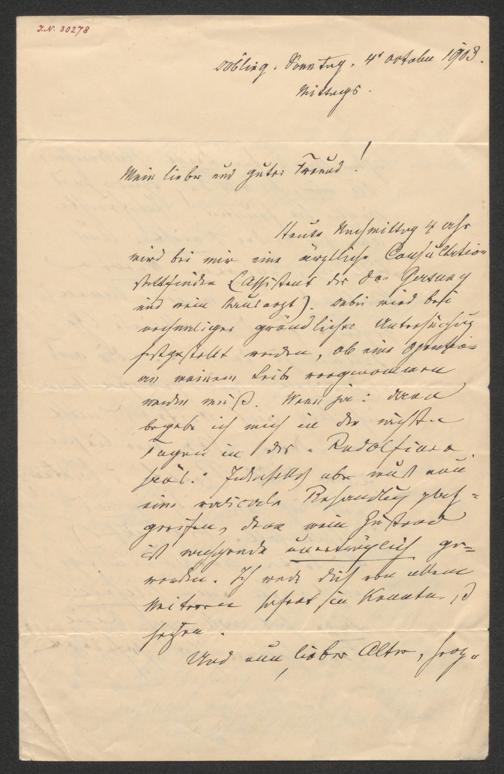 I.N. 30278
Döbling. Sonntag. 4t October 1903.
Mittags.
Mein lieber und guter Freund!
Heute Nachmittag 4 Uhr
wird bei mir eine ärztliche Consultation
stattfinden (Assistent des Dor Gersuny
und mein Hausarzt). Dabei wird bei
nochmaliger gründlicher Untersuchung
festgestellt werden, ob eine Operation
an meinem Leibe vorgenommen
werden muß. Wenn ja: dann
begebe ich mich in den nächsten
Tagen in das "Rudolfiner
Jedenfalls aber muß nun
eine radicale Behandlung platz=
greifen, denn mein Zustand
ist nachgerade unerträglich ge=
worden. Ich werde dich von allem
Weiteren sofort in Kenntnis
setzen.
Und nun, lieber Alter,